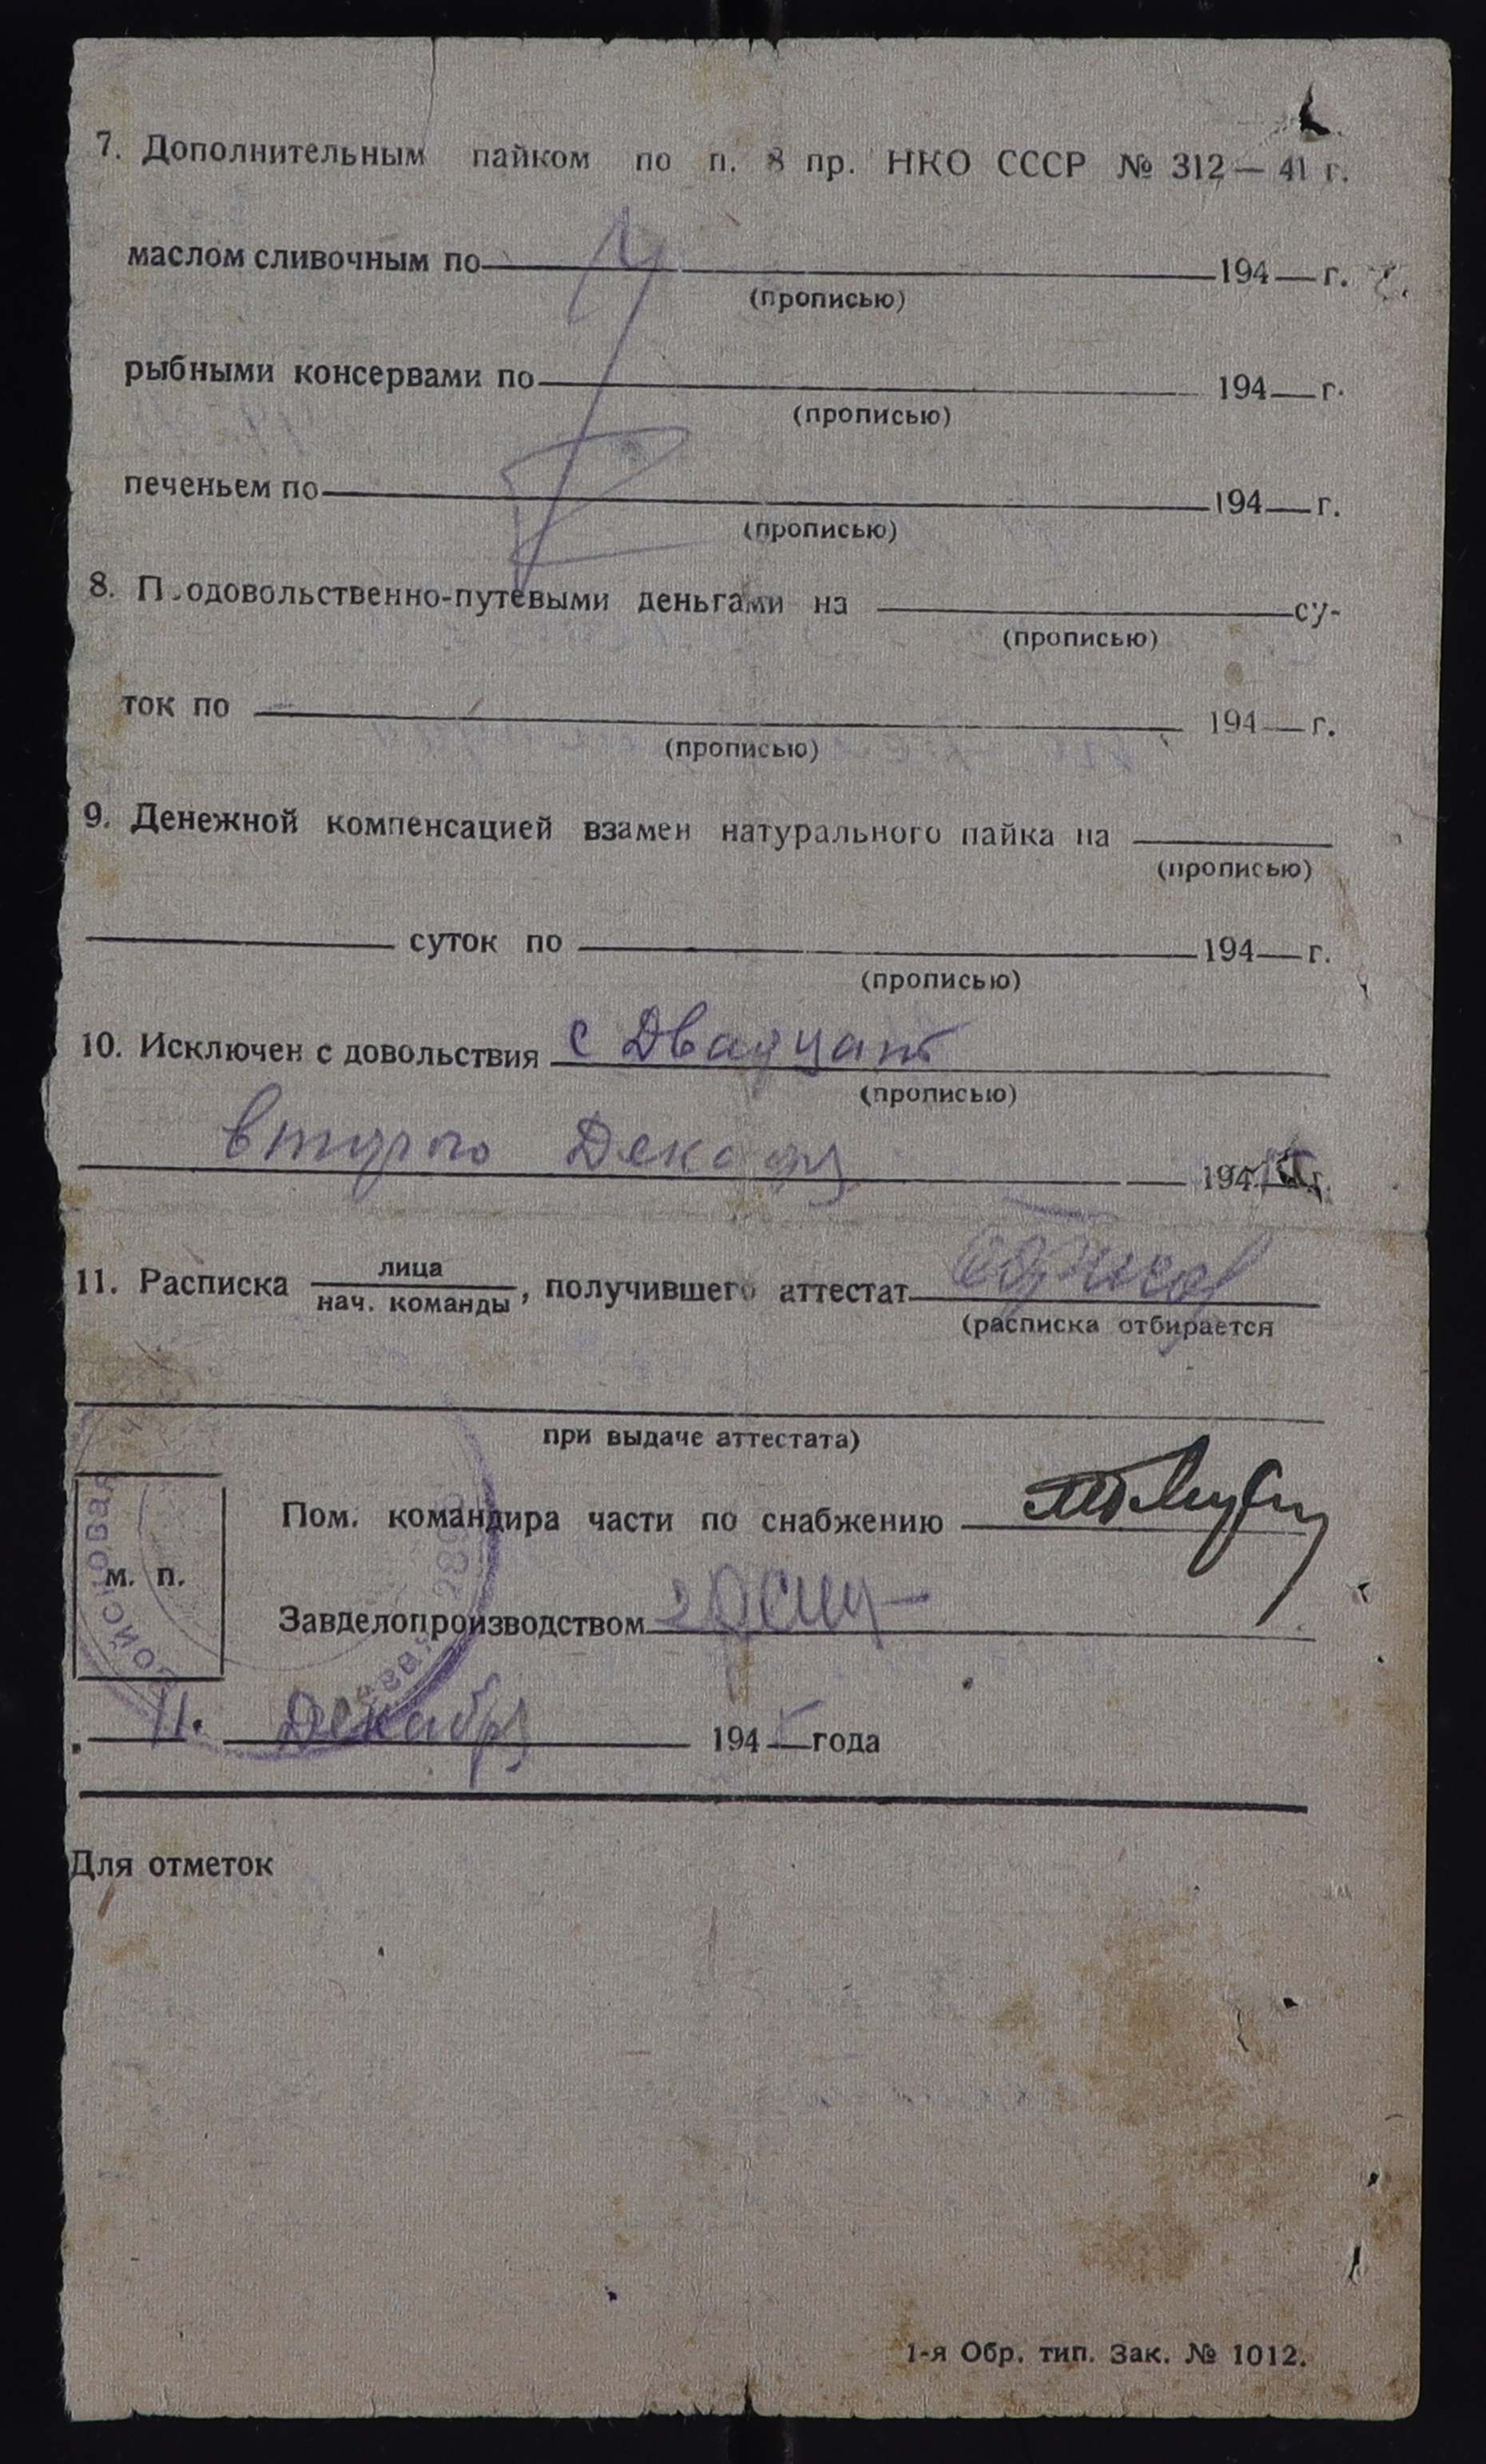 7. Дополнительным пайком по п. 8 пр. НКО СССР № 312 — 41 г.
маслом сливочным по 194 г.
(прописью)
рыбными консервами по 194 г.
(прописью)
печеньем по 194 г.
(прописью)
8. П одовольственно-путевыми деньгами на су-
(прописью)
ток по 194 г.
(прописью)
9. Денежной компенсацией взамен натурального пайка на
(прописью)
суток по 194 г.
(прописью)
10. Исключен с довольствия с Двадцать
(прописью)
второго Декабря 1945 г.
11. Расписка лица
нач. команды, получившего аттестат
(расписка отбирается
при выдаче аттестата)
Пом. командира части по снабжению
м. п.
Завделопроизводством
11. Декабря 1945 года
Для отметок
1-я Обр. тип. Зак. № 1012.